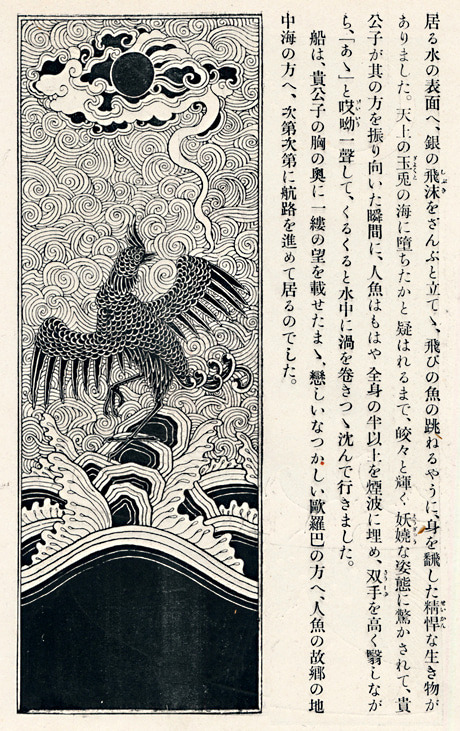 居る水の表面へ、銀の飛沫をざんぶと立てゝ、飛びの魚の跳ねるやうに、身を飜した精悍な生き物が
ありました。天上の玉兎の海に墮ちたかと疑はれるまで、皎々と輝く妖嬈な姿態に驚かされて、貴
公子が其の方を振り向いた瞬間に、人魚はもはや全身の半以上を煙波に埋め、双手を高く翳しなが
ら、「あゝ」と哎呦一聲して、くるくると水中に渦を卷きつゝ沈んで行きました。
船は、貴公子の胸の奧に一縷の望を載せたまゝ、戀しいなつかしい歐羅巴の方へ、人魚の故鄕の地
中海の方へ、次第次第に航路を進めて居るのでした。